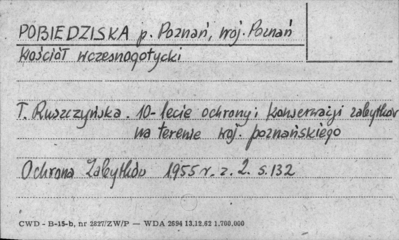 POBIEDZISKA p. Poznań, woj. Poznań
kościół wczesnogotycki
T. Ruszczyńska. 10-lecie ochrony i konserwacji zabytków
na terenie woj. poznańskiego
Ochrona Zabytków 1955 r. z. 2. s. 132
CWD - B-15-b, nr 2827/ZW/P — WDA 2694 13.12.62 1.700.000